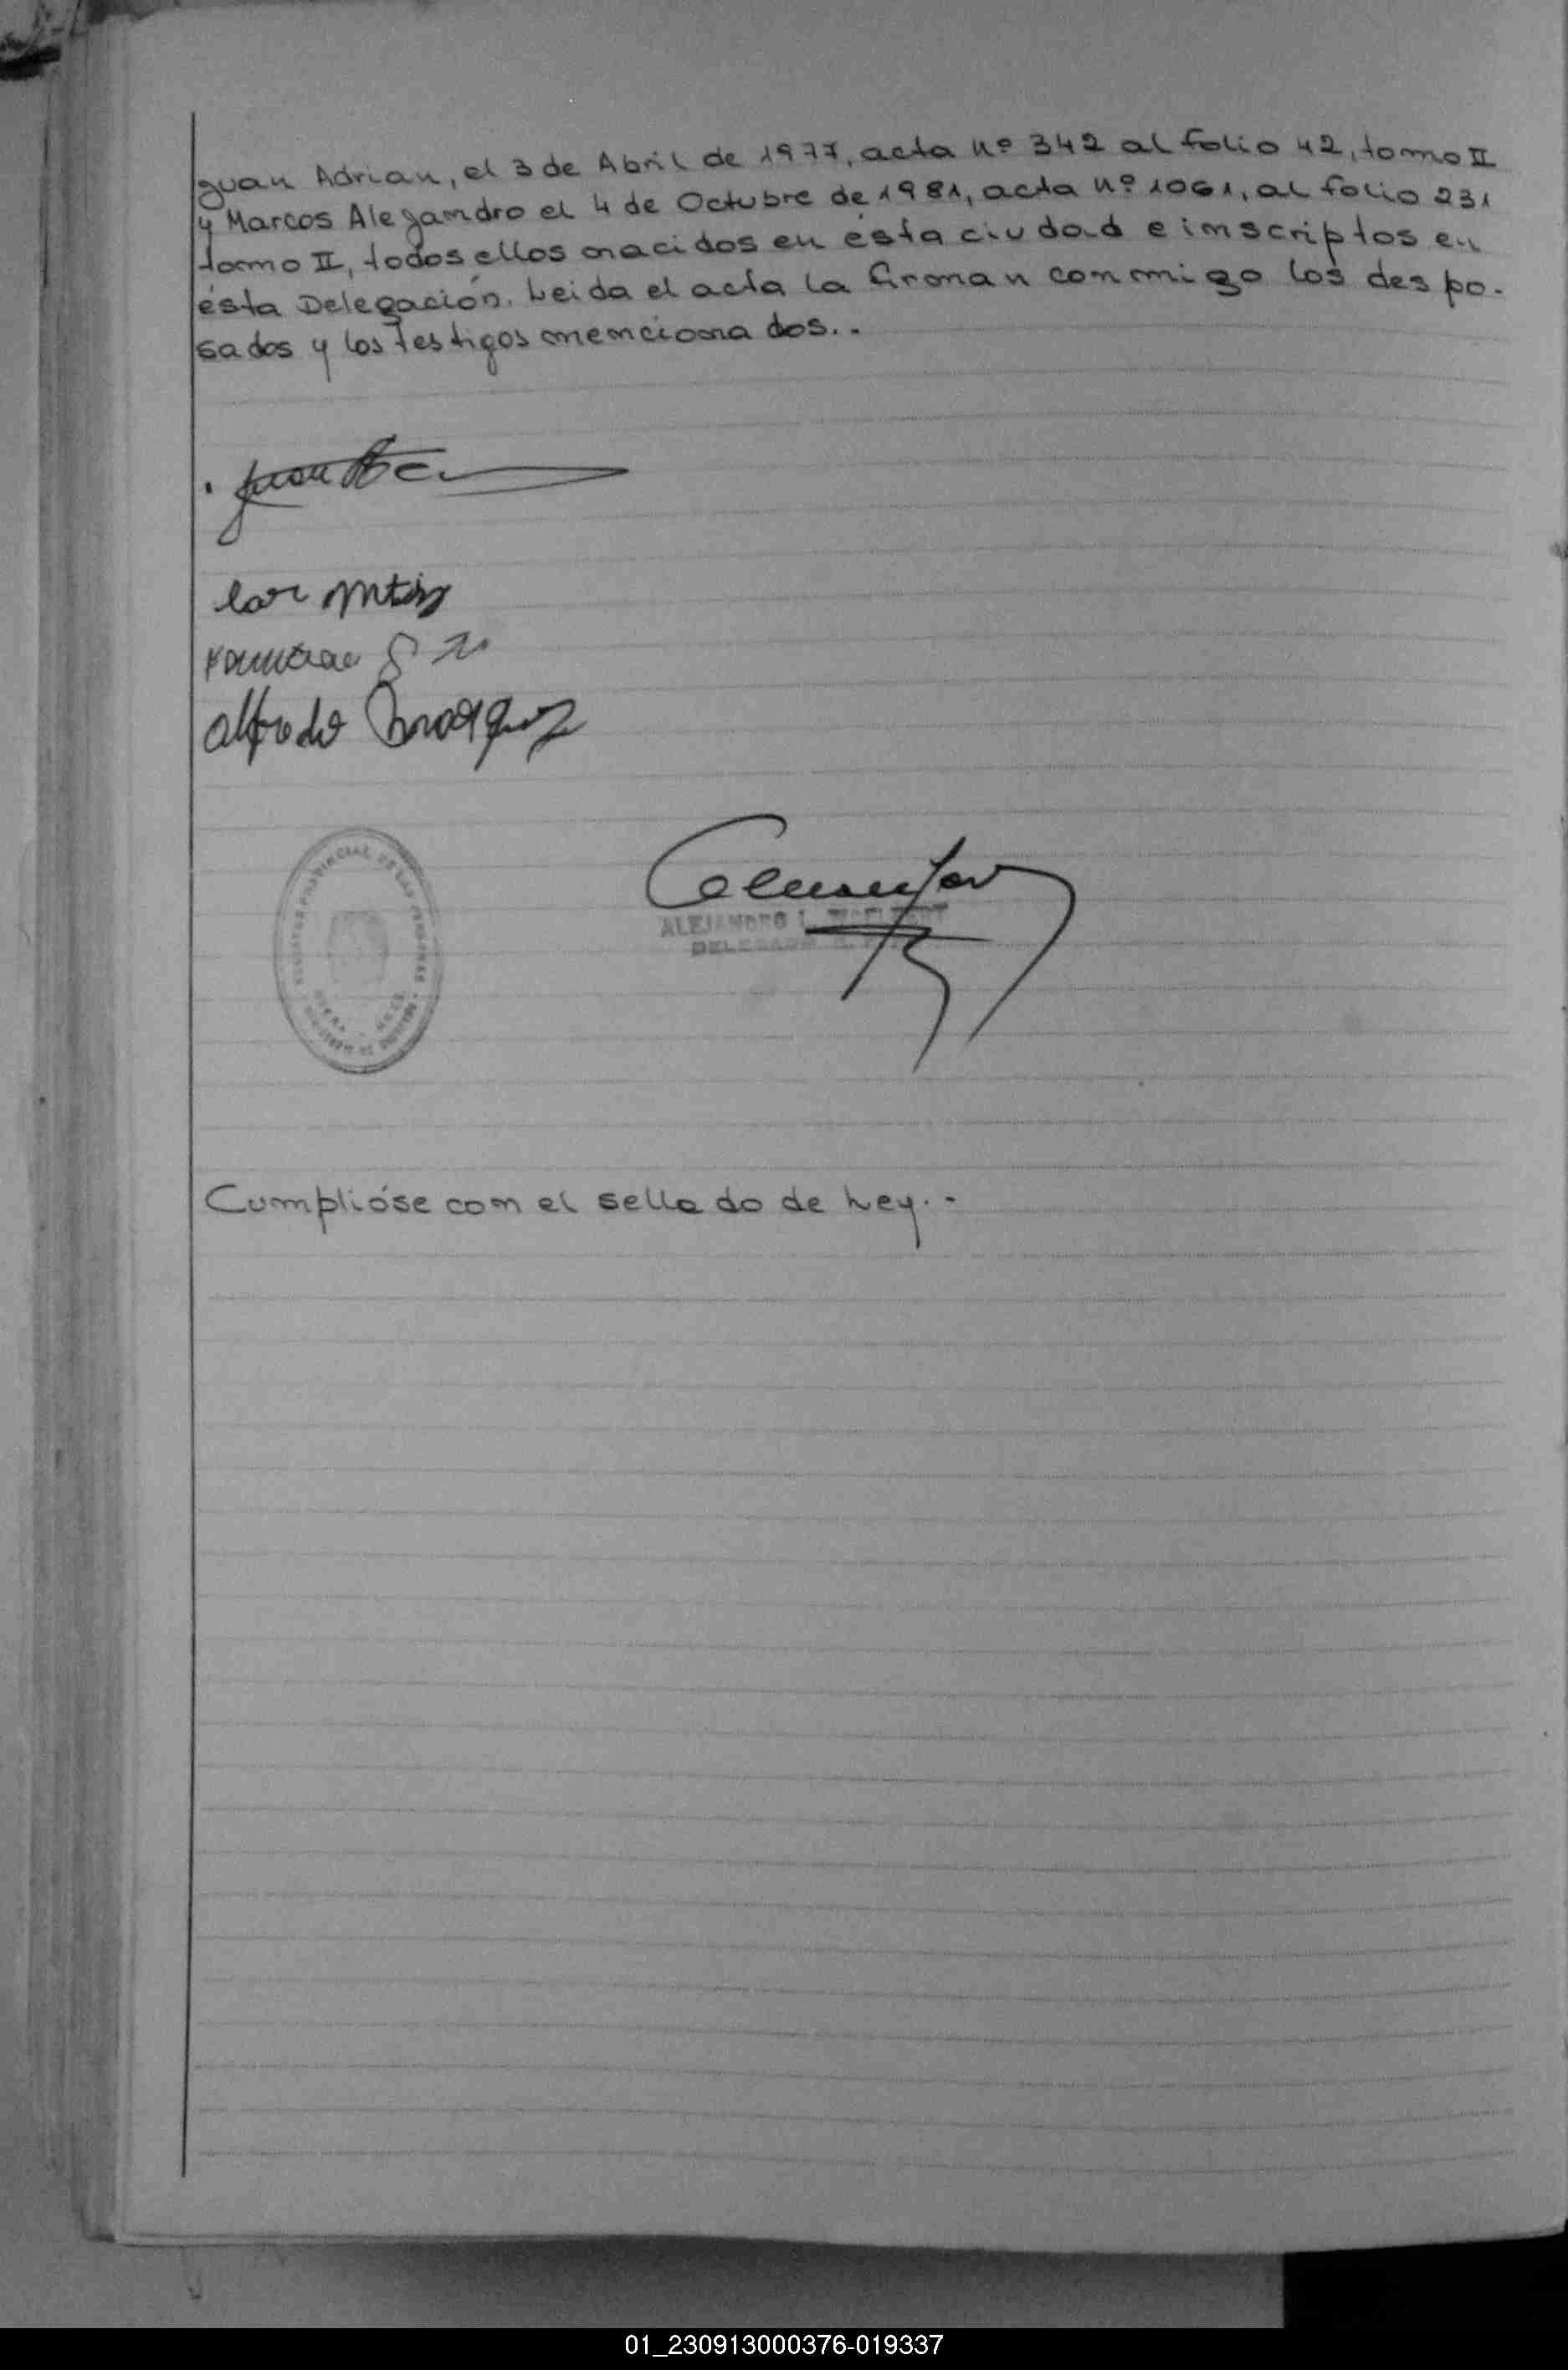 Juan Adrian, el 3 de Abril de 1977, acta nº 342 al folio 42, tomo II
y Marcos Alejandro el 4 de Octubre de 1981, acta nº 1061, al folio 231
tomo II, todos ellos nacidos en ésta ciudad e inscriptos en
ésta Delegación. Leida el acta la firman conmigo los despo-
sados y los testigos mencionados..
alfredo
ALEJANDRO L.
DELEGADO
Cumplióse con el sellado de Ley.-
01_230913000376-019337